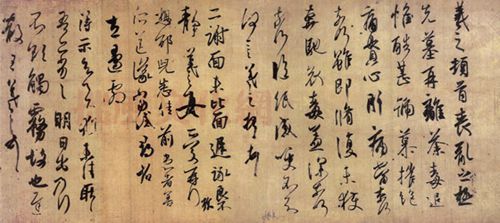 羲之頓首喪亂之極
先墓再離荼毒追
惟酷甚號慕摧絕
痛貫心肝痛當柰何
柰何雖即脩復未獲
奔馳哀毒益深柰何
柰何臨紙感哽不知
何言羲之頓首頓首
二謝面未比面遲詠良
靜羲之女愛再拜
想邵兒悉佳前患者善
左邊劇
得示知足下猶未佳耿耿
吾亦劣劣明日出乃行
不欲觸霧故也遲
散王羲之頓首